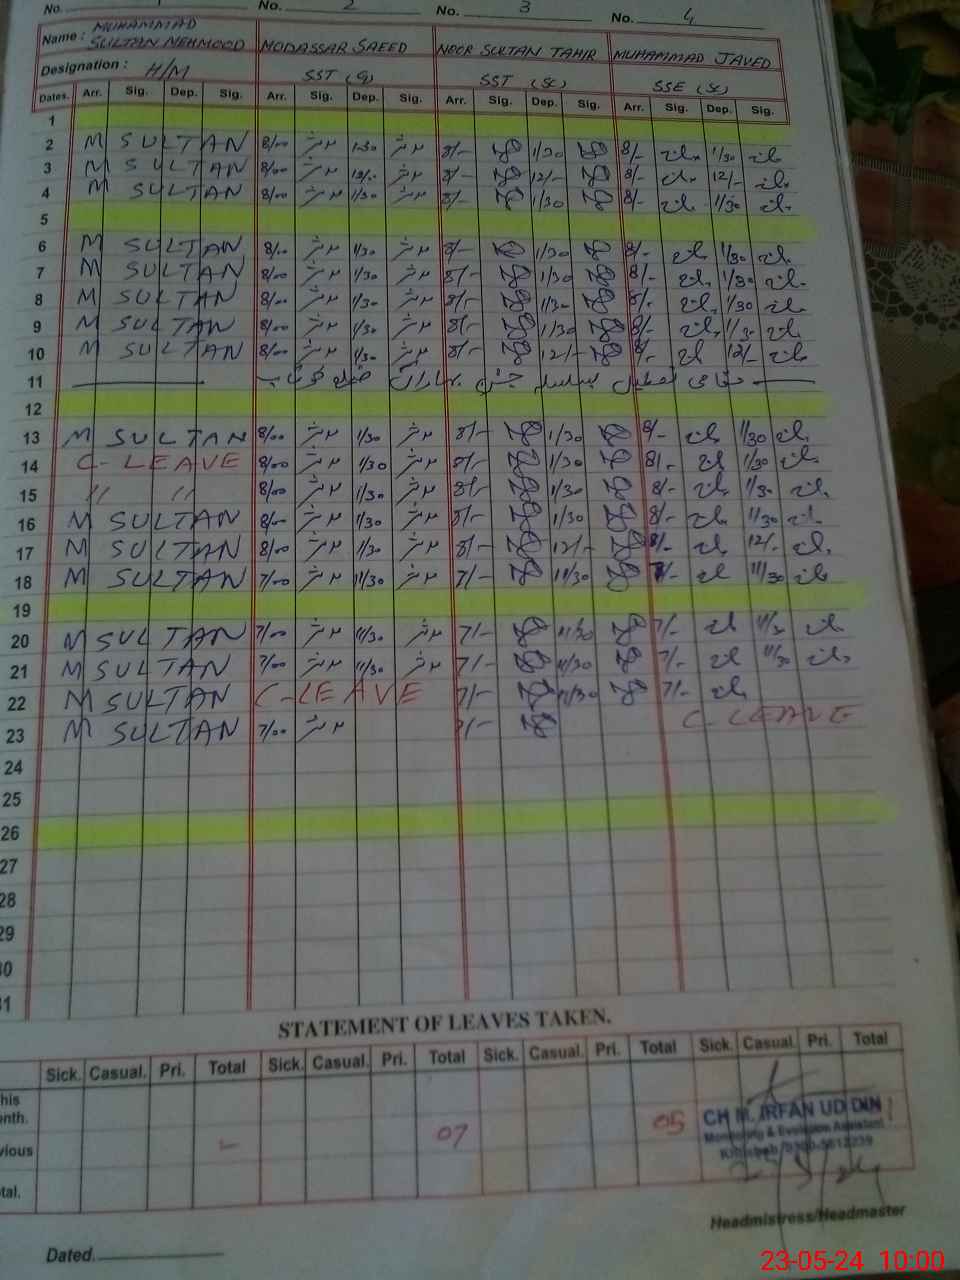 No. 1 No. 2 No. 3 No. 4
Name : MUHAMMAD SULTAN MEHMOOD MODASSAR SAEED NOOR SULTAN TAHIR MUHAMMAD JAVED
Designation : H/M SST (G) SST (Sc) SSE (Sc)
Dates. Arr. Sig. Dep. Sig. Arr. Sig. Dep. Sig. Arr. Sig. Dep. Sig. Arr. Sig. Dep. Sig.
1
2 M SULTAN 8/00 1/30 8/- 1/30 8/- 1/30
3 M SULTAN 8/00 12/- 8/- 12/- 8/- 12/-
4 M SULTAN 8/00 1/30 8/- 1/30 8/- 1/30
5
6 M SULTAN 8/00 1/30 8/- 1/30 8/- 1/30
7 M SULTAN 8/00 1/30 8/- 1/30 8/- 1/30
8 M SULTAN 8/00 1/30 8/- 1/30 8/- 1/30
9 M SULTAN 8/00 1/30 8/- 1/30 8/- 1/30
10 M SULTAN 8/00 1/30 8/- 12/- 8/- 12/-
11 مقامی تعطیل بسلسلہ جشن
12
13 M SULTAN 8/00 1/30 8/- 1/30 8/- 1/30
14 C-LEAVE 8/00 1/30 8/- 1/30 8/- 1/30
15 " " 8/00 1/30 8/- 1/30 8/- 1/30
16 M SULTAN 8/00 1/30 8/- 1/30 8/- 1/30
17 M SULTAN 8/00 1/30 8/- 12/- 8/- 12/-
18 M SULTAN 7/00 11/30 7/- 11/30 7/- 11/30
19
20 M SULTAN 7/00 11/30 7/- 11/30 7/- 11/30
21 M SULTAN 7/00 11/30 7/- 11/30 7/- 11/30
22 M SULTAN C-LEAVE 7/- 11/30 7/-
23 M SULTAN 7/00 7/- C-LEAVE
24
25
26
27
28
29
30
31
STATEMENT OF LEAVES TAKEN.
Sick. Casual. Pri. Total Sick. Casual. Pri. Total Sick. Casual. Pri. Total Sick. Casual. Pri. Total
his
nth.
vious - 07 05
tal.
CH M. IRFAN UD DIN
Monitoring & Evaluation Assistant
Headmistress/Headmaster
Dated.
23-05-24 10:00